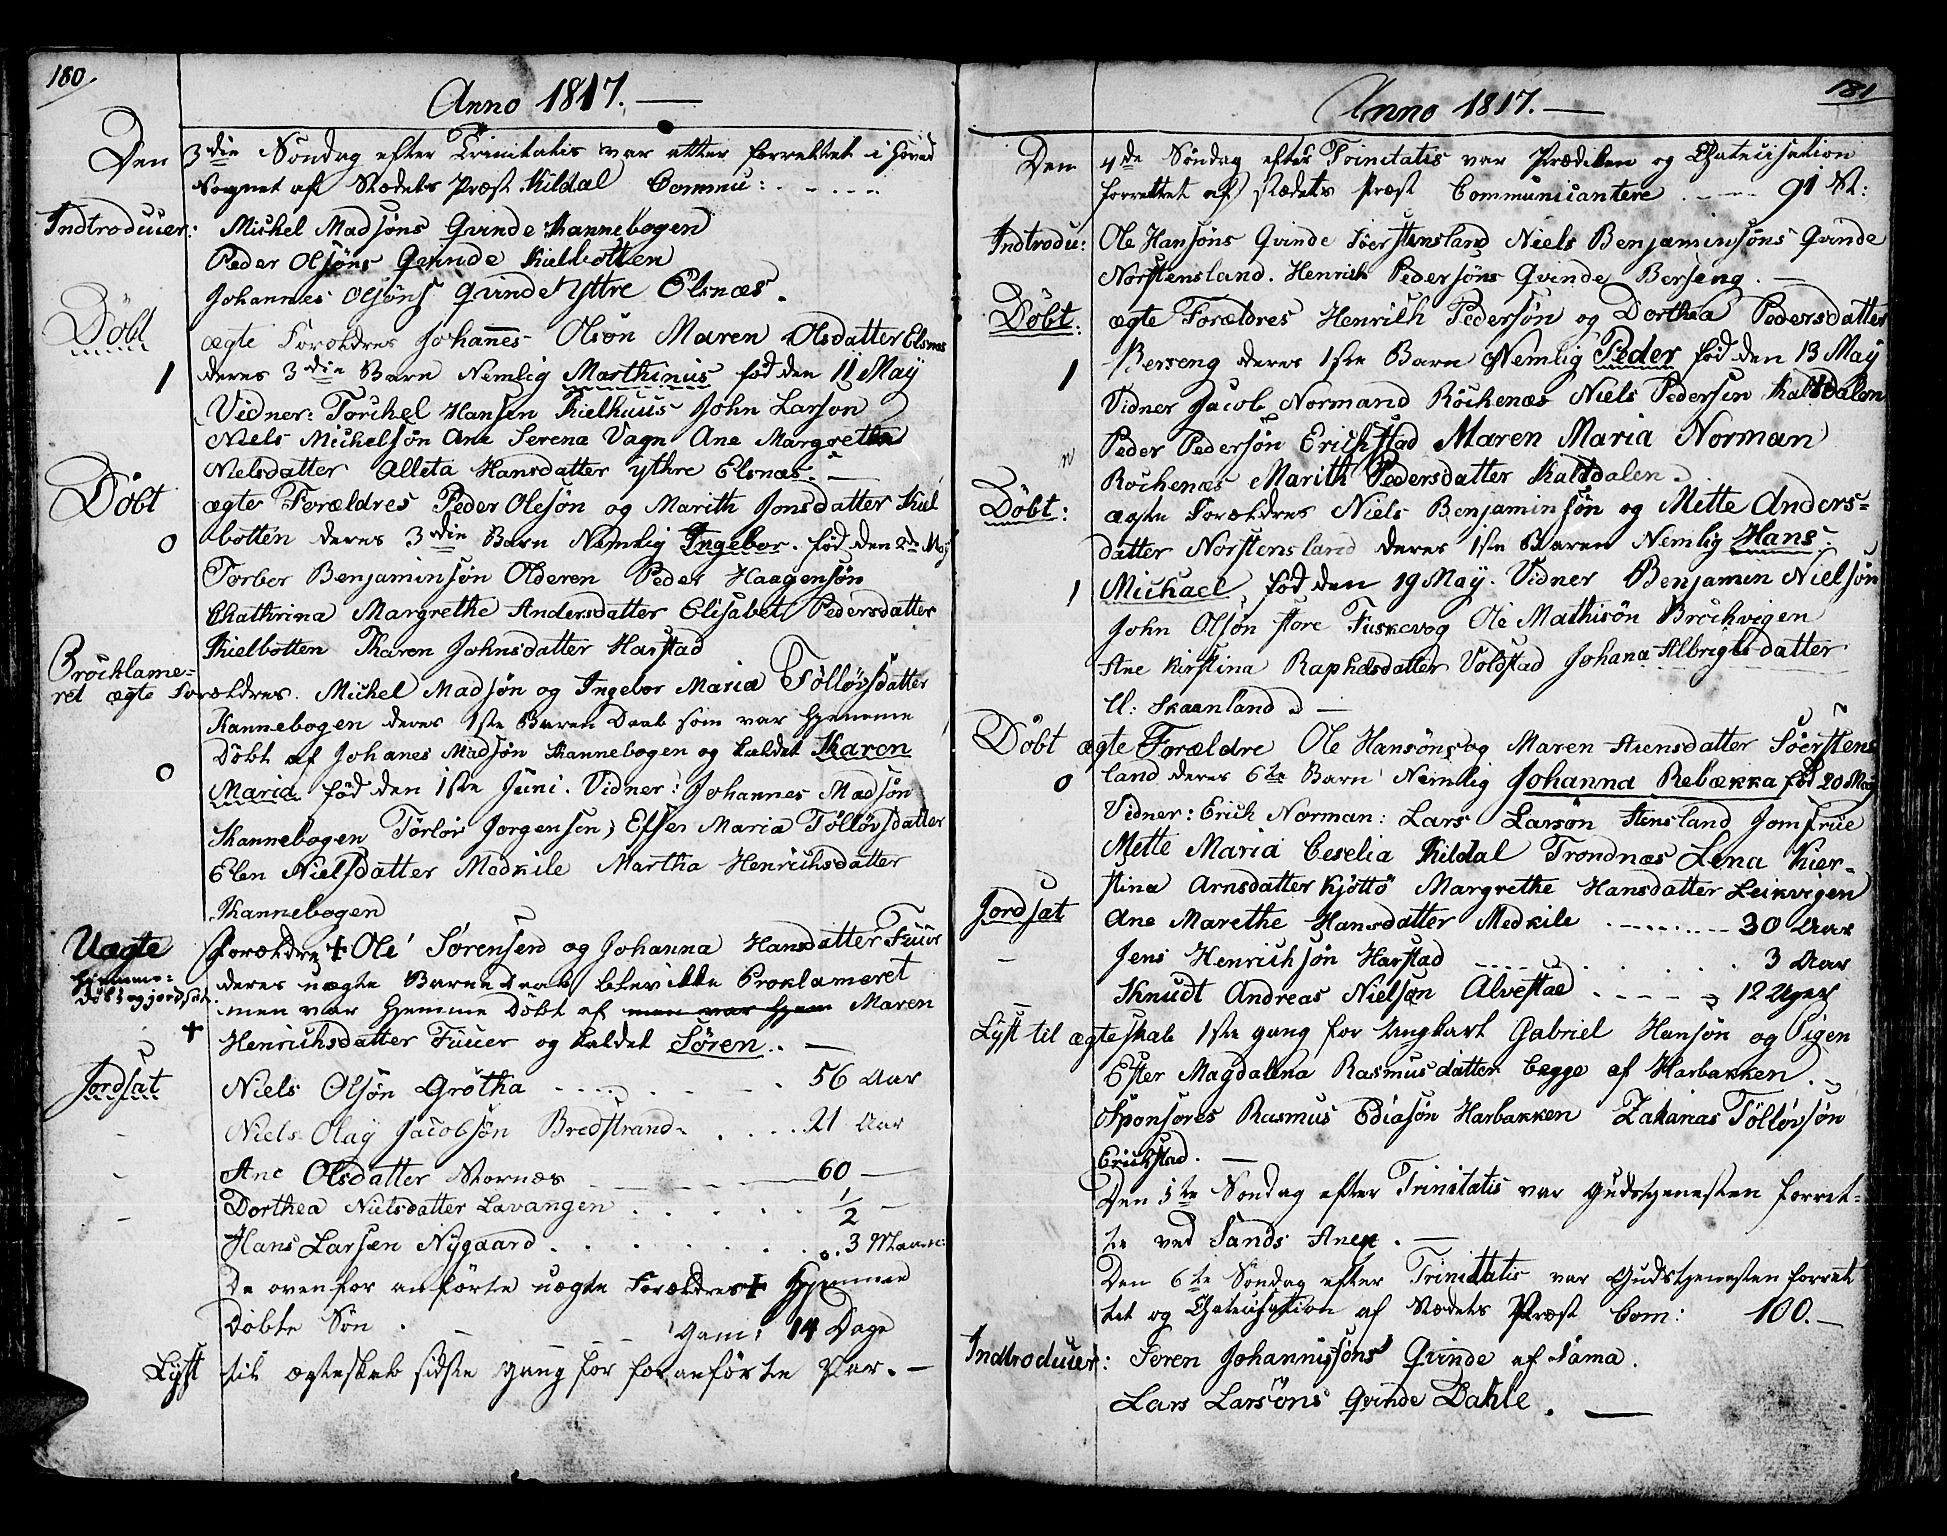 180
Anno 1817. —
Den 3die Söndag efter Trinitatis var atter forrettet i Hoved
Sognet af Stedets Præst Kildal Commu: - - - -
Indtroducer: Michel Madsöns Qvinde Kannebogen
Peder Olsöns Qvinde Kielbotten
Johannes Olsöns Qvinde yttre Elsnæs.
Döbt ægte Forældres Johannes Olsön Maren Olsdatter Elsnæs
1 deres 3die Barn Nemlig Marthinus föd den 11 May
Vidner: Torchel Hansen Kielhuus John Larson
Niels Michelsön Ane Serena Vagn Ane Margrethe
Nielsdatter Alleta Hansdatter ythre Elsnæs. —
Döbt ægte Forældres Peder Olesön og Marith Jonsdatter Kiel
0 botten deres 3die Barn Nemlig Ingebor. föd den 2de May
Torber Benjaminsön Olderen Peder Haagensön
Chathrina Margrethe Andersdatter Elisabet Pedersdatter
Kielbotten Karen Johnsdatter Harstad
Procklame-
ret ægte Forældres. Michel Madsön og Ingebor Maria Töllövsdatter
Kannebogen deres 1ste Barn Daab som var Hjemme
Döbt af Johanes Madsön Kannebogen og kaldet Karen
0 Maria föd den 1ste Juni. Vidner: Johannes Madsön
Kannebogen Törlör Jorgensen, Esser Maria Töllövsdatter
Elen Nielsdatter Medkile Martha Henrichsdatter
Kannebogen
Uægte Forældre + Ole Sørensen og Johanna Hansdatter Fuur
Hjemme- deres uægte Barns Daab blev ikke Proklameret
Döbt og jordsat men var Hjemme Döbt af men var Hjem Maren
+ Henrichsdatter Fuuer og kaldet Sören. —
Jordsat Niels Olsön Grötha - - - - 56 Aar
Niels Olay Jacobsön Bredstrand . . . . 21 Aar
Ane Olsdatter Stornæs — 60 —
Dorthea Nielsdatter Lavangen . . . . . 1/2 —
Hans Larsen Nygaard . . . . . . . 3 Maan:
De ovenfor anförte uægte Forældres + Hjemme
Döbte Sön . — — Gam: 14 Dage
Lyst til ægteskab sidste gang for for anförte Par. —
181
Anno 1817. —
Den 4de Söndag efter Trinitatis var Prædiken og Catechisation
forrettet af stædets Præst Communicantere . . — 91 St:
Indtrodu: Ole Hansöns Qvinde Söerstensland Niels Benjaminsöns Qvinde
Norstensland. Henrich Pedersöns Qvinde Berseng. —
Döbt: ægte Forældres Henrich Pedersön og Dorthea Pedersdatter
1 Berseng deres 1ste Barn Nemlig Peder föd den 13 May
Vidner Jacob Normand Röckenæs Niels Pedersen Kaldsdalen
Peder Pedersön Erichstad Maren Maria Norman
Röckenæs Marith Pedersdatter Kaltdalen.
Döbt: ægte Forældres Niels Benjaminsön og Mette Anders-
datter Norstensland deres 1ste Barn Nemlig Hans
1 Michael, föd den 19 May. Vidner Benjamin Nielsön
John Olsön store Fuskevog Ole Mathisön Brochvigen
Ane Kirstina Raphælsdatter Voldstad Johana Albrigtsdatter
U: Skaanland. —
Döbt ægte Forældre Ole Hansöns og Maren Aiensdatter Söerstens
0 land deres 6te Barn Nemlig Johanna Rebækka föd 20 May
Vidner: Erich Norman: Lars Larsön Stensland Jomfrue
Mette Maria Ceselia Kildal Trondnæs Lena Kier-
stina Arnsdatter Kjöttö Margrethe Hansdatter Leikvigen
Jordsat Ane Marethe Hansdatter Medkile . - - - - - 30 Aar
Jens Henrichsön Harstad - - - - . . . . 3 Aar
Knudt Andreas Nielsön Alvestad . - - - 12 Uger
Lyst til ægteskab 1ste gang for Ungkarl Gabriel Hansön og Pigen
Ester Magdalena Rasmusdatter begge af Harbakken.
Sponsores Rasmus Ediasön Harbakken Zakarias Töllövsön
Erickstad. —
Den 5te Söndag efter Trinitatis var Gudstjenesten forret-
te ved Sands Anex. —
Den 6te Söndag efter Trinitatis var Gudstjenesten forret
tet og Catechisation af Stædets Præst Com: 100. —
Indtroducer: Seren Johannissöns Qvinde af Sama.
Lars Larsöns Qvinde Dahle. —